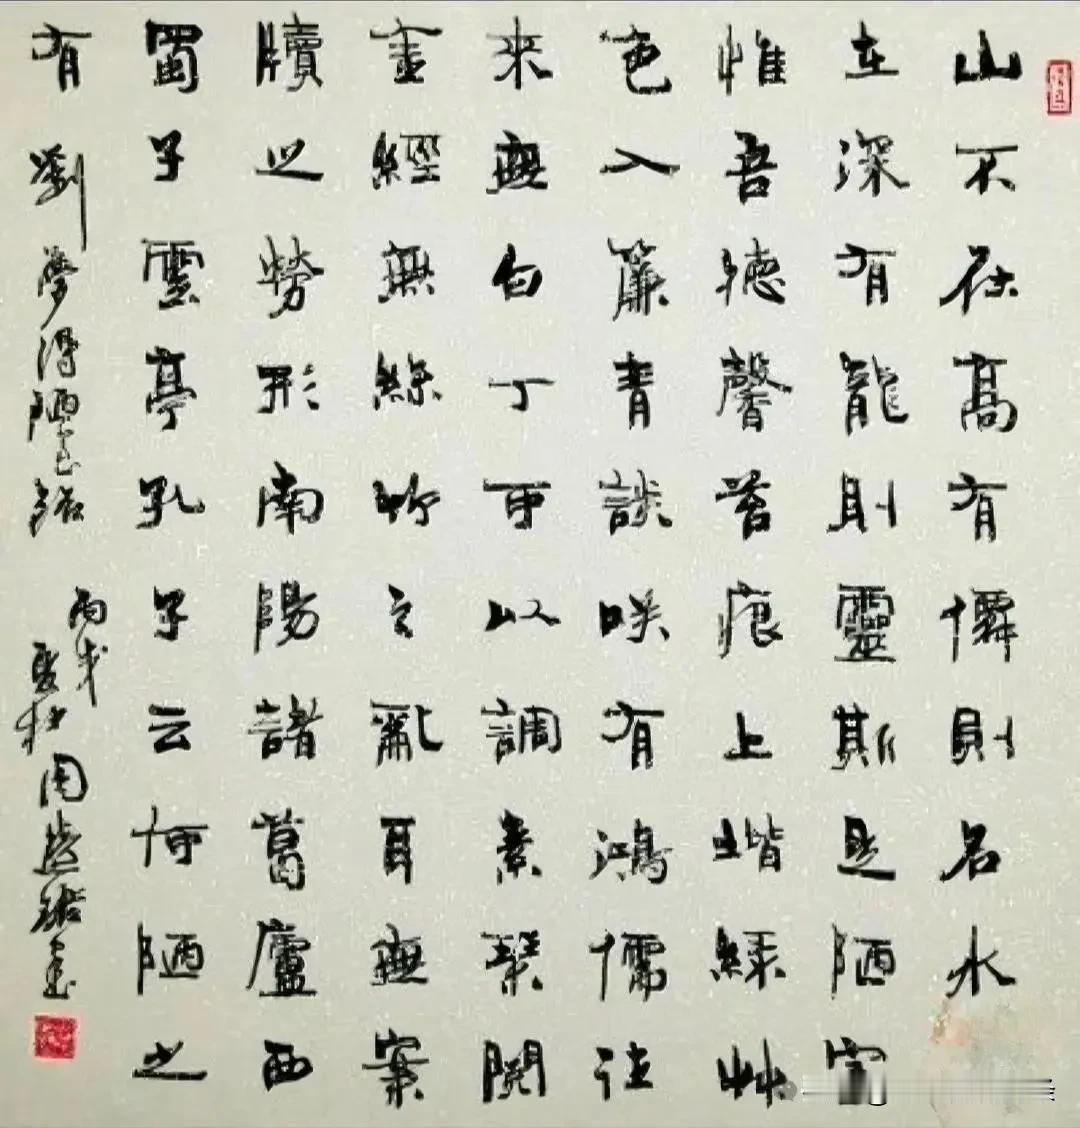 山不在高有僊則名水
在深有龍則靈斯是陋室
惟吾德馨苔痕上堦綠艸
色入簾青談咲有鴻儒往
來無白丁可以調素琴閱
金經無絲竹之亂耳無案
牘之勞形南陽諸葛廬西
蜀子雲亭孔子云何陋之
有 劉夢得陋室銘 丙戌夏 周慧珺書